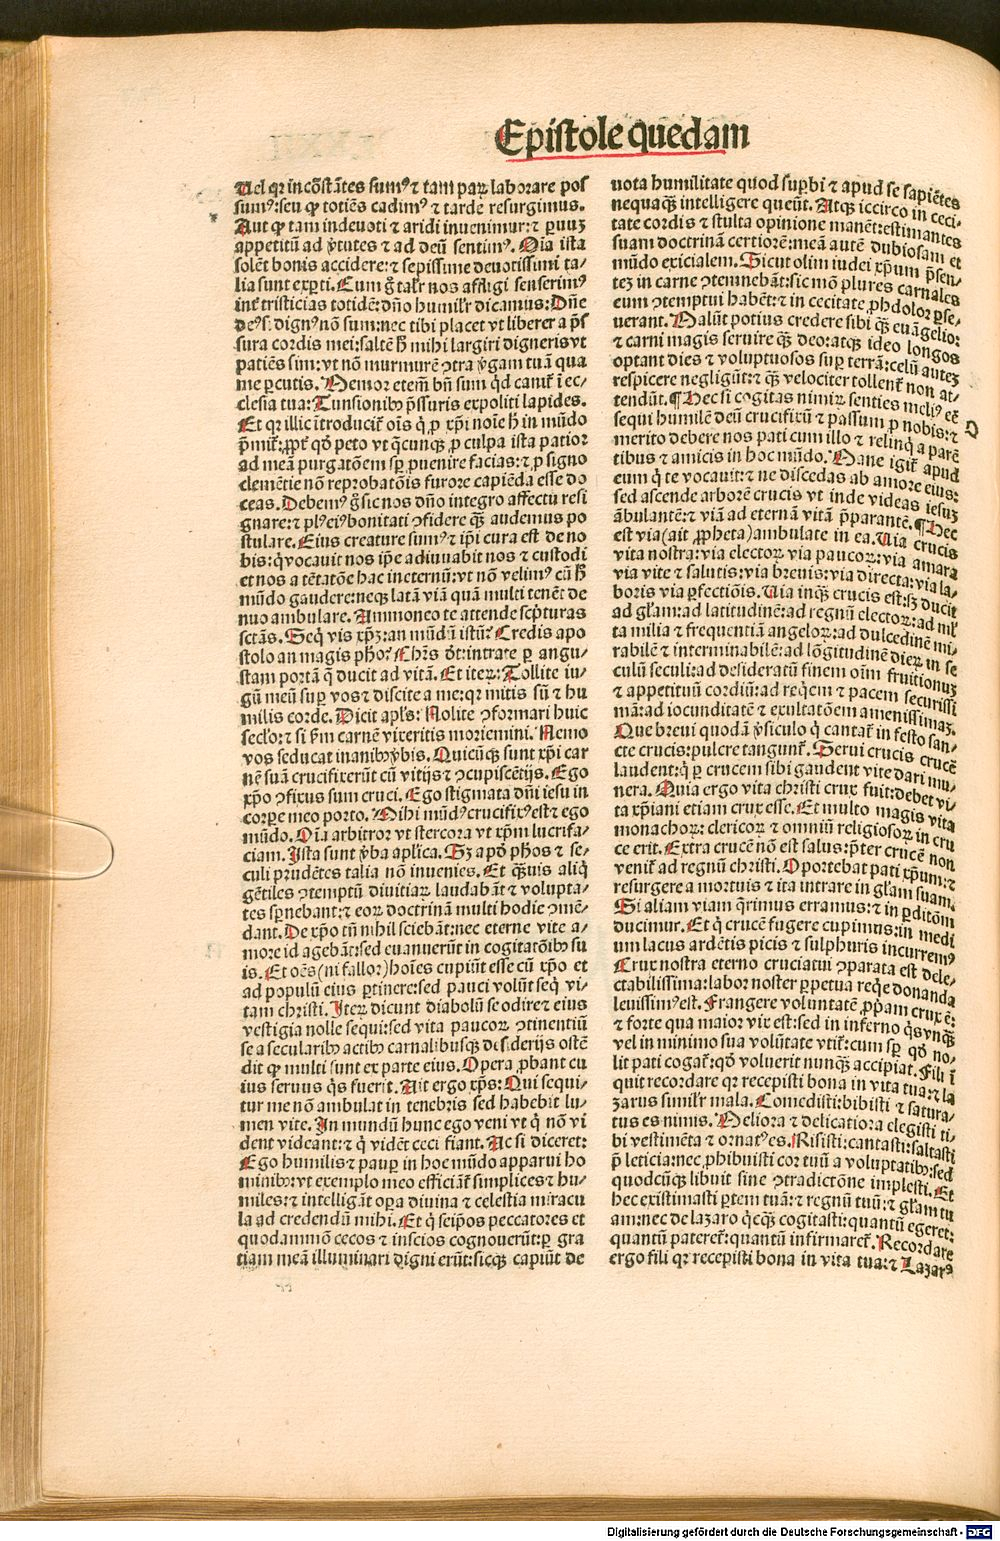 Epistole quedam
Uel qꝛ incōstātes sumꝰ ⁊ tam paꝝ laborare pos
sumꝰ: seu ꝙ totiēs cadimꝰ ⁊ tarde resurgimus.
Aut ꝙ tam indeuoti ⁊ aridi inuenimur: ⁊ ꝑuuꝫ
appetitū ad v̓tutes ⁊ ad deū sentimꝰ. Oīa ista
solēt bonis accidere: ⁊ sepissime deuotissimi ta⸗
lia sunt exꝑti. Cum g̊ tal̓r nos affligi senserimꝰ
int̓ tristicias totidē: dn̄o humil̓r dicamus: Dn̄e
deꝰ: dignꝰ nō sum: nec tibi placet vt liberer a p̄s
sura cordis mei: saltē h̄ mihi largiri digneris vt
patiēs sim: vt nō murmurē ꝯtra v̓gam tuā qua
me ꝑcutis. Memor etem̄ bn̄ sum q̇d canit̓ ī ec⸗
clesia tua: Tunsionibꝰ p̄ssuris expoliti lapides.
Et qꝛ illic ītroducit̓ oīs q̇ ꝓ xp̄i noīe h̄ in mūdo
p̄mit̓: ꝓpt̓ qd̓ peto vt q̄cunqꝫ ꝓ culpa ista patior
ad meā purgatōem sꝑ ꝓuenire facias: ⁊ ꝓ signo
clemētie nō reprobatōis furore capiēda esse do
ceas. Debemꝰ g̊ sic nos dn̄o integro affectu resi
gnare: ⁊ plꝰ eiꝰ bonitati ꝯfidere qꝫ̄ audemus po
stulare. Eius creature sumꝰ ⁊ ip̄i cura est de no
bis: q̇ vocauit nos ip̄e adiuuabit nos ⁊ custodi
et nos a tētatōe hac ineternū: vt nō velimꝰ cū h̄
mūdo gaudere: neqꝫ latā viā quā multi tenēt de
nuo ambulare. Ammoneo te attende scp̄turas
sctās. Seq̇ vis xp̄ꝫ: an mūdū istū? Credis apo
stolo an magis ph̄o? Chr̄s dt̓: intrate ꝑ angu⸗
stam portā q̄ ducit ad vitā. Et iteꝝ: Tollite iu⸗
gū meū suꝑ vos ⁊ discite a me: qꝛ mitis sū ⁊ hu
milis corde. Dicit apl̓s: Nolite ꝯformari huic
secl̓o: ⁊ si sm̄ carnē vixeritis moriemini. Nemo
vos seducat inanibꝰ v̓bis. Quicūqꝫ sunt xp̄i car
nē suā crucifixerūt cū vitijs ⁊ ꝯcupiscētijs. Ego
xp̄o ꝯfixus sum cruci. Ego stigmata dn̄i iesu in
corꝑe meo porto. Mihi mūdꝰ crucifixꝰ est ⁊ ego
mūdo. Oīa arbitror vt stercora vt xp̄m lucrifa⸗
ciam. Ista sunt v̓ba aplica. Sꝫ apd̓ ph̄os ⁊ se⸗
culi prudētes talia nō inuenies. Et qꝫ̄uis aliq̇
gētiles ꝯtemptū diuitiaꝝ laudabāt ⁊ volupta⸗
tes sꝑnebant: ⁊ eoꝝ doctrinā multi hodie ꝯmē⸗
dant. De xp̄o tn̄ nihil sciebāt: nec eterne vite a⸗
more id agebāt: sed euanuerūt in cogitatōibꝰ su
is. Et oēs (ni fallor) hoīes cupiūt esse cū xp̄o et
ad populū eius ꝑtinere: sed pauci volūt seq̇ vi⸗
tam christi. Iteꝝ dicunt diabolū se odire ⁊ eius
vestigia nolle sequi: sed vita paucoꝝ ꝯtinentiū
se a secularibꝰ actibꝰ carnalibusqꝫ desiderijs ostē
dit ꝙ multi sunt ex parte eius. Opera ꝓbant cu
ius seruus q̇s fuerit. Ait ergo xp̄s: Qui sequi⸗
tur me nō ambulat in tenebris sed habebit lu⸗
men vite. In mundū hunc ego veni vt q̇ nō vi
dent videant: ⁊ q̇ vidēt ceci fiant. Ac si diceret:
Ego humilis ⁊ pauꝑ in hoc mūdo apparui ho
minibꝰ: vt exemplo meo efficiāt̓ simplices ⁊ hu⸗
miles: ⁊ intelligāt oꝑa diuina ⁊ celestia miracu
la ad credendū mihi. Et q̇ seip̄os peccatores et
quodammō cecos ⁊ inscios cognouerūt: ꝑ gra
tiam meā illuminari digni erūt: sicqꝫ capiūt de
uota humilitate quod suꝑbi ⁊ apud se sapiētes
nequaqꝫ̄ intelligere queūt. Atqꝫ iccirco in ceci⸗
tate cordis ⁊ stulta opinione manēt: estimantes
suam doctrinā certiorē: meā autē dubiosam et
mūdo exicialem. Sicut olim iudei xp̄um p̄sen⸗
teꝫ in carne ꝯtemnebāt: sic mō plures carnales
eum ꝯtemptui habēt: ⁊ in cecitate ꝓhdolor ꝑse⸗
uerant. Malūt potius credere sibi qꝫ̄ euāgelio:
⁊ carni magis seruire qꝫ̄ deo: atqꝫ ideo longos
optant dies ⁊ voluptuosos suꝑ terrā: celū auteꝫ
respicere negligūt: ⁊ qꝫ̄ velociter tollent̓ non at⸗
tendūt. ¶ Hec si cogitas nimiꝝ senties meliꝰ eē
sequi humilē deū crucifixū ⁊ passum ꝓ nobis: ⁊
merito debere nos pati cum illo ⁊ relinq̇ a parē
tibus ⁊ amicis in hoc mūdo. Mane igit̓ apud
eum q̇ te vocauit: ⁊ ne discedas ab amore eius:
sed ascende arborē crucis vt inde videas iesuꝫ
ābulantē: ⁊ viā ad eternā vitā p̄parantē. ¶ Hec
est via (ait ꝓpheta) ambulate in ea. Uia crucis
vita nostra: via electoꝝ via paucoꝝ: via amara
via vite ⁊ salutis: via breuis: via directa: via la⸗
boris via ꝑfectiōis. Uia inqꝫ̄ crucis est: sꝫ ducit
ad gl̓am: ad latitudinē: ad regnū electoꝝ: ad ml̓
ta milia ⁊ frequentiā angeloꝝ: ad dulcedinē mi⸗
rabilē ⁊ interminabilē: ad lōgitudinē dieꝝ in se
culū seculi: ad desideratū finem oīm fruitionuꝫ
⁊ appetituū cordiū: ad req̇em ⁊ pacem securissi
mā: ad iocunditatē ⁊ exultatōem amenissimaꝫ.
Que breui quodā v̓siculo q̇ cantat̓ in festo san⸗
cte crucis: pulcre tangunt̓. Serui crucis crucē
laudent: q̇ ꝑ crucem sibi gaudent vite dari mu⸗
nera. Quia ergo vita christi crux fuit: debet vi⸗
ta xp̄iani etiam crux esse. Et multo magis vita
monachoꝝ: clericoꝝ ⁊ omniū religiosoꝝ in cru
ce erit. Extra crucē nō est salus: p̄ter crucē non
venit̓ ad regnū christi. Oportebat pati xp̄um: ⁊
resurgere a mortuis ⁊ ita intrare in gl̓am suam.
Si aliam viam q̄rimus erramus: ⁊ in ꝑditōm
ducimur. Et q̇ crucē fugere cupimus: in medi
um lacus ardētis picis ⁊ sulphuris incurremꝰ
Crux nostra eterno cruciatui ꝯparata est dele⸗
ctabilissima: labor noster ꝑpetua req̇e donanda
leuissimꝰ est. Frangere voluntatē ꝓpriam crux ē:
⁊ forte qua maior vix est: sed in inferno q̇svnqꝫ̄
vel in minimo sua volūtate vtit̓: cum sꝑ qd̓ no⸗
lit pati cogat̓: qd̓ voluerit nunqꝫ̄ accipiat. Fili ī
quit recordare qꝛ recepisti bona in vita tua: ⁊ la
zarus simil̓r mala. Comedisti: bibisti ⁊ satura⸗
tus es nimis. Meliora ⁊ delicatiora elegisti ti⸗
bi vestimēta ⁊ ornatꝰ es. Risisti: cantasti: saltasti
p̄ leticia: nec ꝓhibuisti cor tuū a voluptatibꝰ: sed
quodcūqꝫ libuit sine ꝯtradictōne implesti. Et
hec existimasti ꝑtem tuā: ⁊ regnū tuū: ⁊ gl̓am tu
am: nec de lazaro q̇cqꝫ̄ cogitasti: quantū egeret:
quantū pateret̓: quantū infirmaret̓. Recordare
ergo fili qꝛ recepisti bona in vita tua: ⁊ Lazarꝰ
Digitalisierung gefördert durch die Deutsche Forschungsgemeinschaft - DFG